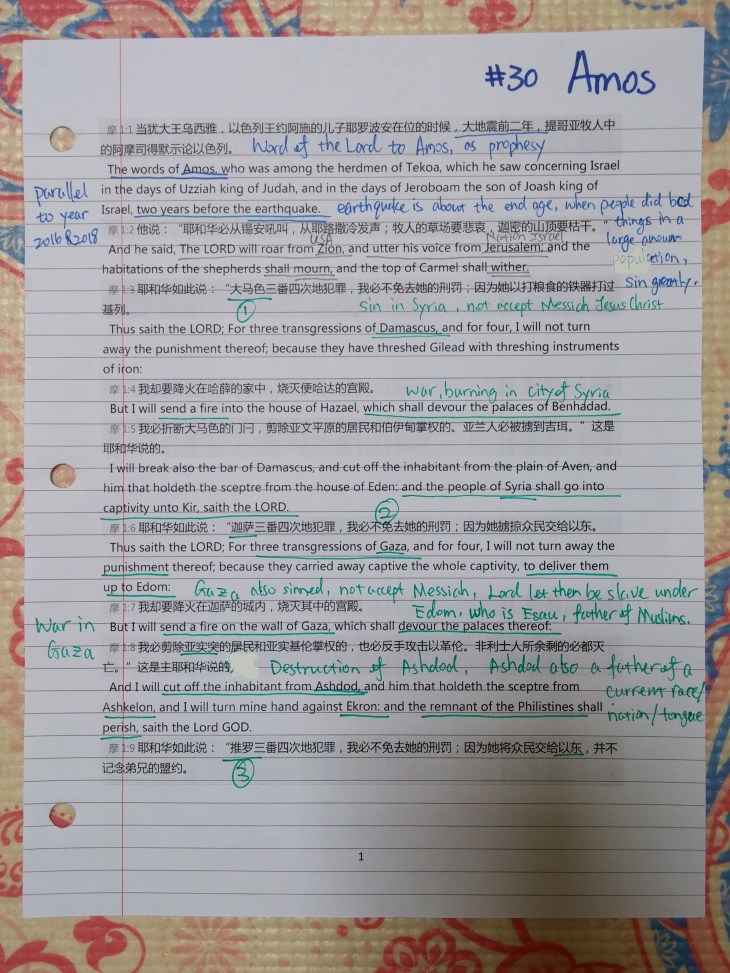 #30 Amos
摩 1:1 当犹大王乌西雅，以色列王约阿施的儿子耶罗波安在位的时候，大地震前二年，提哥亚牧人中
的阿摩司得默示论以色列。 Word of the Lord to Amos, as prophesy
The words of Amos, who was among the herdmen of Tekoa, which he saw concerning Israel
in the days of Uzziah king of Judah, and in the days of Jeroboam the son of Joash king of
Israel, two years before the earthquake. earthquake is about the end age, when people did bad
parallel
to year
2016 & 2018
things in a
large amount
population,
sin greatly.
摩 1:2 他说：“耶和华必从锡安吼叫，从耶路撒冷发声；牧人的草场要悲哀，迦密的山顶要枯干。”
USA Nation Israel
And he said, The LORD will roar from Zion, and utter his voice from Jerusalem; and the
habitations of the shepherds shall mourn, and the top of Carmel shall wither.
摩 1:3 耶和华如此说：“大马色三番四次地犯罪，我必不免去她的刑罚；因为她以打粮食的铁器打过
基列。 ① Sin in Syria, not accept Messich Jesus Christ
Thus saith the LORD; For three transgressions of Damascus, and for four, I will not turn
away the punishment thereof; because they have threshed Gilead with threshing instruments
of iron:
摩 1:4 我却要降火在哈薛的家中，烧灭便哈达的宫殿。 War, burning in city of Syria
But I will send a fire into the house of Hazael, which shall devour the palaces of Benhadad.
摩 1:5 我必折断大马色的门闩，剪除亚文平原的居民和伯伊甸掌权的。亚兰人必被掳到吉珥。”这是
耶和华说的。
I will break also the bar of Damascus, and cut off the inhabitant from the plain of Aven, and
him that holdeth the sceptre from the house of Eden: and the people of Syria shall go into
captivity unto Kir, saith the LORD. ②
摩 1:6 耶和华如此说：“迦萨三番四次地犯罪，我必不免去她的刑罚；因为她掳掠众民交给以东。
Thus saith the LORD; For three transgressions of Gaza, and for four, I will not turn away the
punishment thereof; because they carried away captive the whole captivity, to deliver them
up to Edom: Gaza also sinned, not accept Messich, Lord let then be slave under
摩 1:7 我却要降火在迦萨的城内，烧灭其中的宫殿。 Edom, who is Esau, father of Muslims.
War in
Gaza
But I will send a fire on the wall of Gaza, which shall devour the palaces thereof:
摩 1:8 我必剪除亚实突的居民和亚实基伦掌权的，也必反手攻击以革伦。非利士人所余剩的必都灭
亡。”这是主耶和华说的。 Destruction of Ashdod, Ashdod also a father of a
current race/
nation/tongue
And I will cut off the inhabitant from Ashdod, and him that holdeth the sceptre from
Ashkelon, and I will turn mine hand against Ekron: and the remnant of the Philistines shall
perish, saith the Lord GOD.
摩 1:9 耶和华如此说：“推罗三番四次地犯罪，我必不免去她的刑罚；因为她将众民交给以东，并不
记念弟兄的盟约。 ③
1